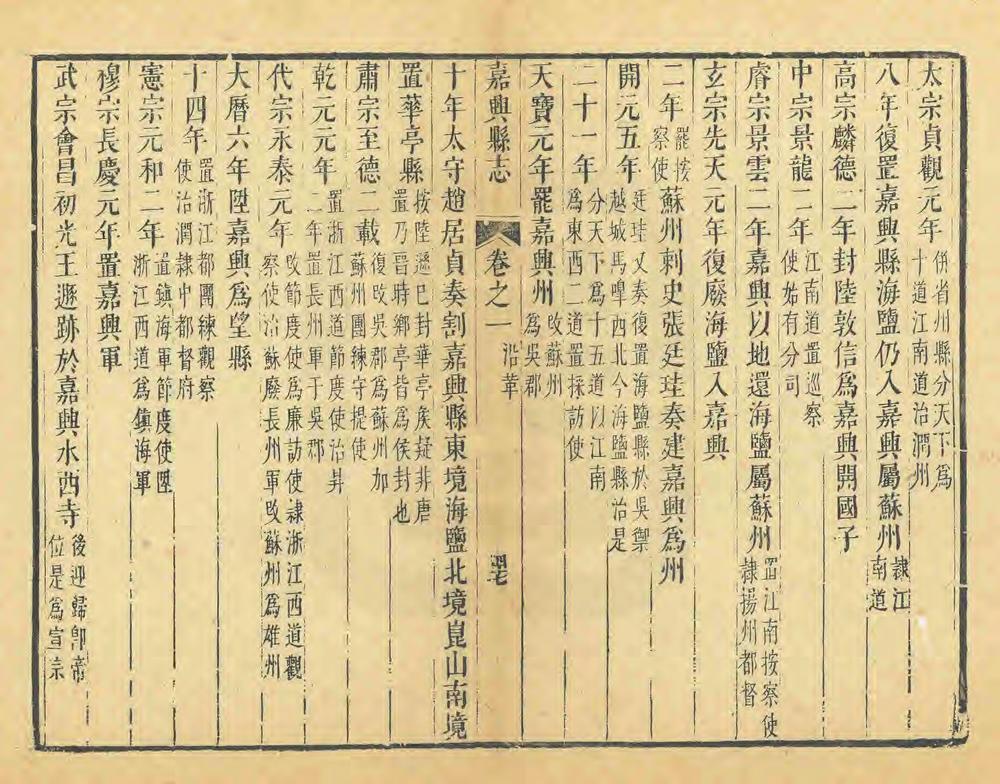 太宗貞觀元年 併省州縣分天下爲十道江南道治潤州
八年復置嘉興縣海鹽仍入嘉興屬蘇州 隸江南道
高宗麟德二年封陸敦信爲嘉興開國子
中宗景龍二年 江南道置巡察使始有分司
睿宗景雲二年嘉興以地還海鹽屬蘇州 置江南按察使隸揚州都督
玄宗先天元年復廢海鹽入嘉興
二年 罷按察使 蘇州刺史張廷珪奏建嘉興爲州
開元五年 廷珪又奏復置海鹽縣於吳禦越城馬嘷西北今海鹽縣治是
二十一年 分天下爲十五道以江南爲東西二道置採訪使
天寶元年罷嘉興州 改蘇州爲吳郡
嘉興縣志 卷之一 沿革
十年太守趙居貞奏割嘉興縣東境海鹽北境崑山南境
置華亭縣 按陸遜已封華亭矦疑非唐置乃晉時鄉亭皆爲侯封也
肅宗至德二載 復改吳郡爲蘇州加蘇州團練守提使
乾元元年 置浙江西道節度使治昇二年置長州軍于吳郡
代宗永泰元年 改節度使爲廉訪使隷浙江西道觀察使治蘇廢長州軍改蘇州爲雄州
大曆六年陞嘉興爲望縣
十四年 置浙江都團練觀察使治潤隷中都督府
憲宗元和二年 置鎮海軍節度使陞浙江西道爲鎮海軍
穆宗長慶元年置嘉興軍
武宗會昌初光王遯跡於嘉興水西寺 後迎歸卽帝位是爲宣宗